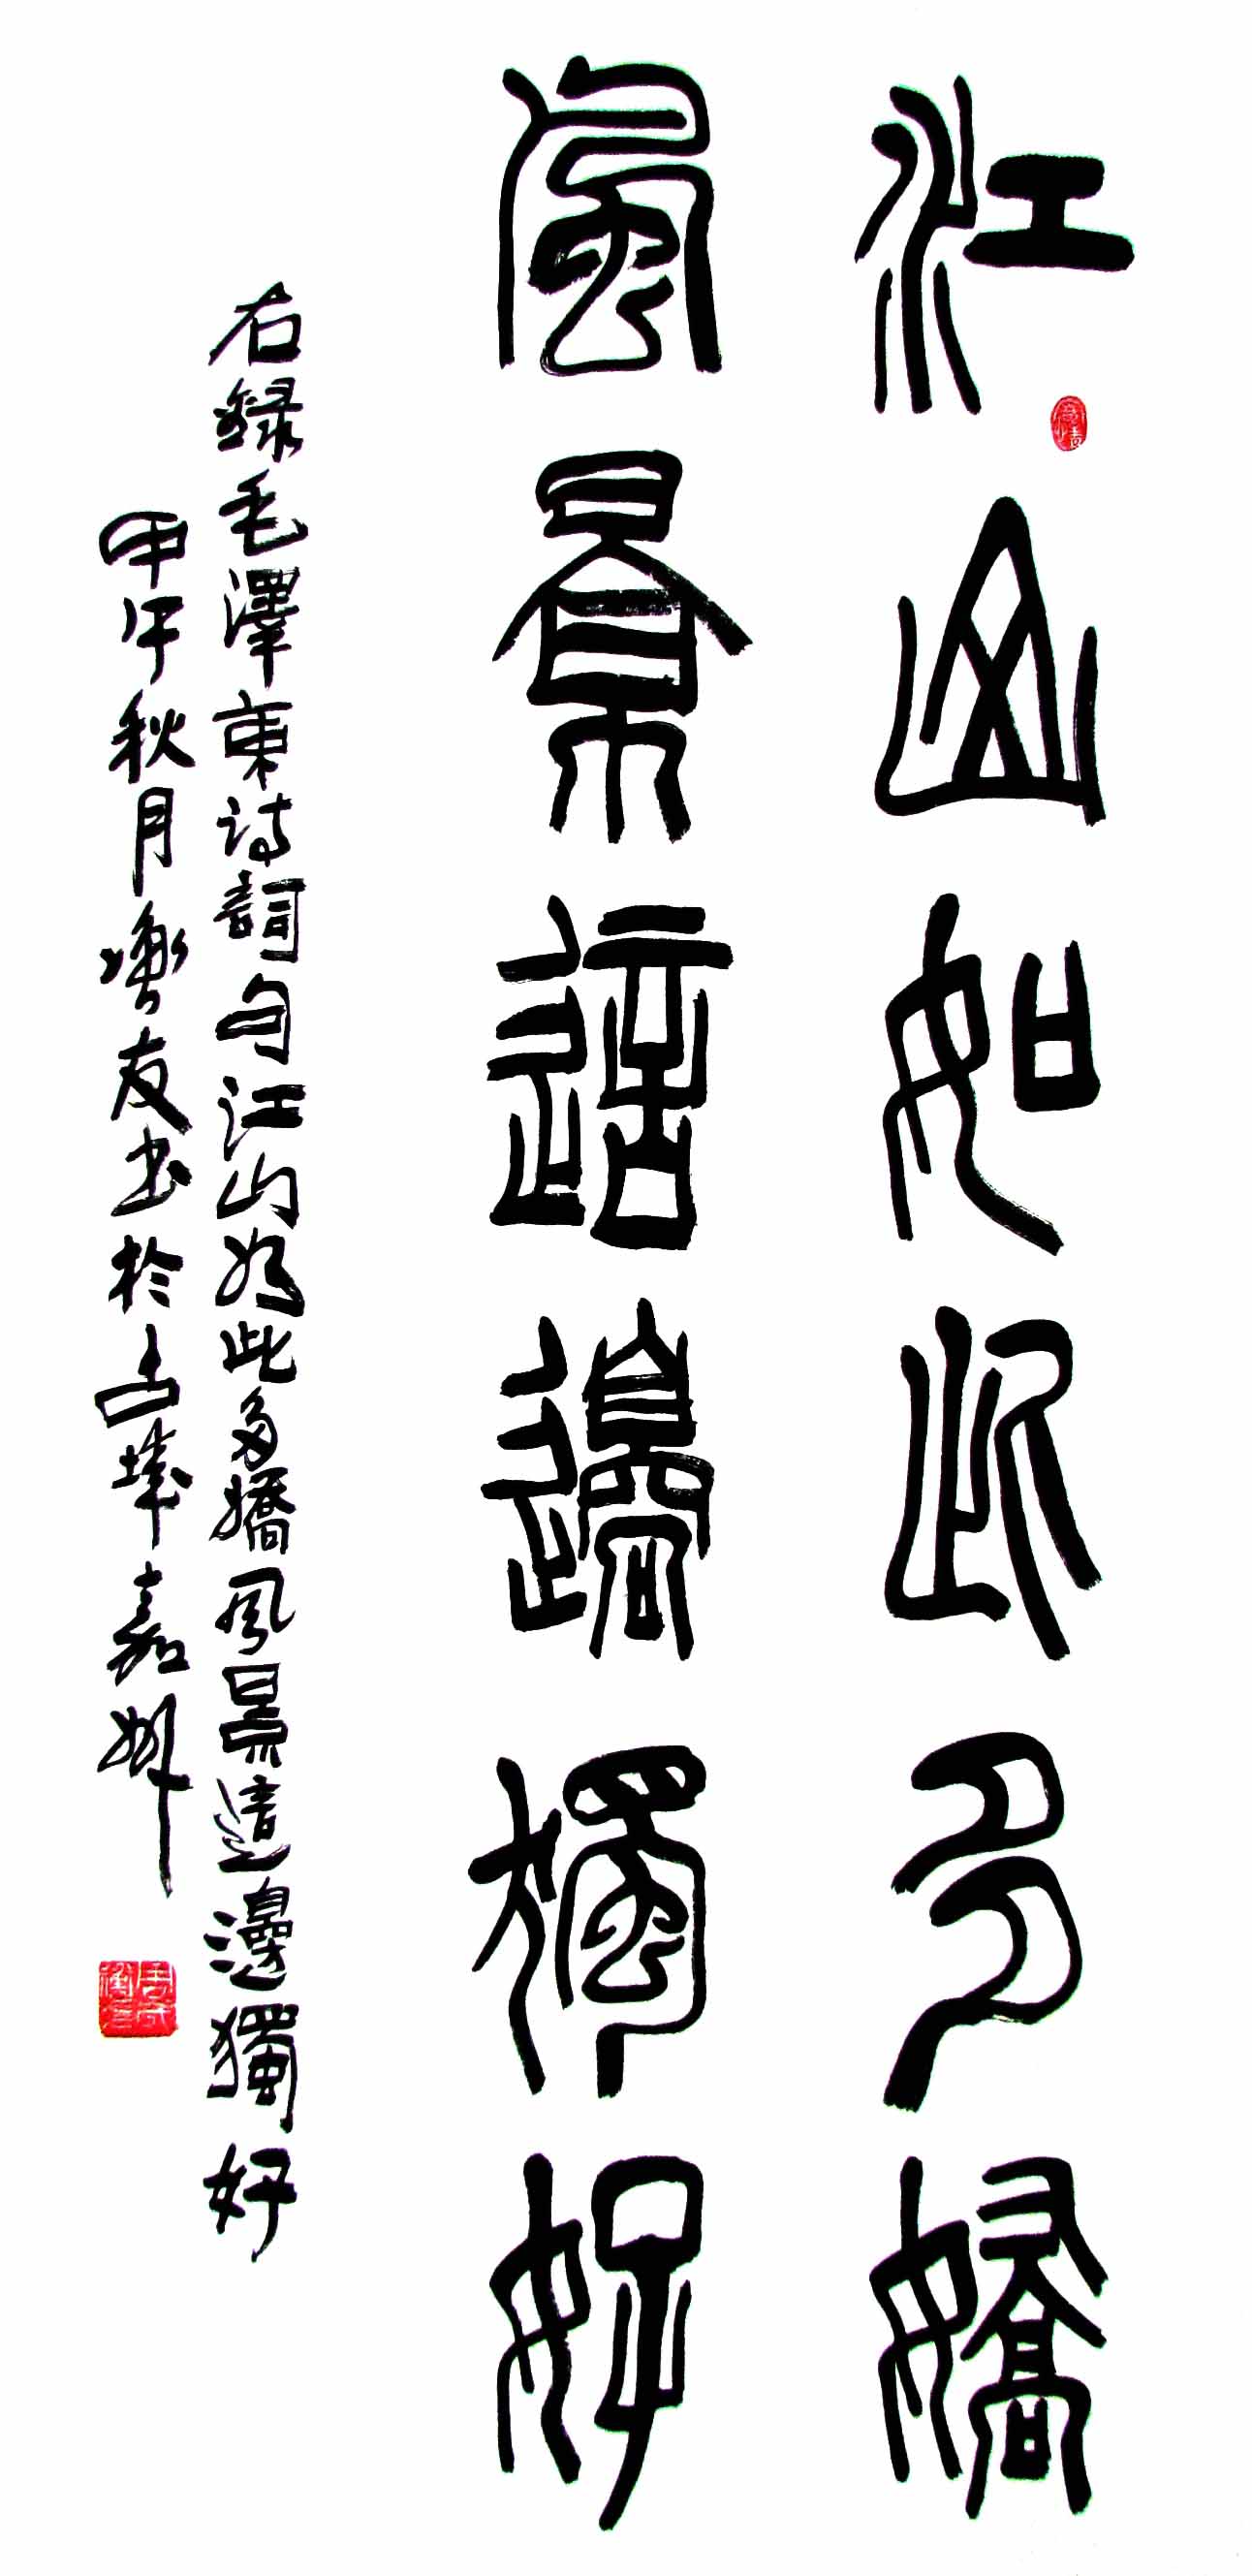 江山如此多嬌
風景這邊獨好
右録毛澤東詩詞句江山如此多嬌風景這邊獨好
甲午秋月衛友書於古埠嘉